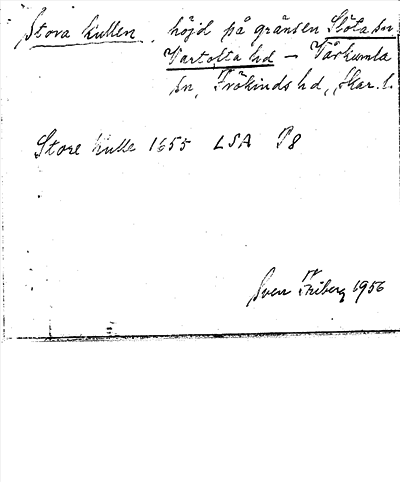 Stora kullen, höjd på gränsen Slöta sn
Vartofta hd – Vårkumla
sn, Frökinds hd, Skar. l.
Store Kulle 1655 LSA P8
Sven Friberg 1956